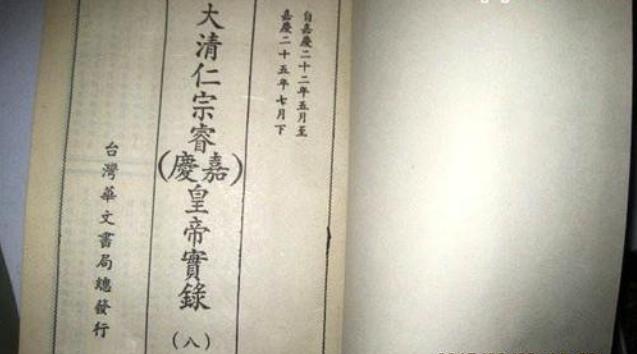 自嘉慶二十二年五月至
嘉慶二十五年七月下
大清仁宗睿(嘉慶)皇帝實錄
(八)
台灣華文書局總發行